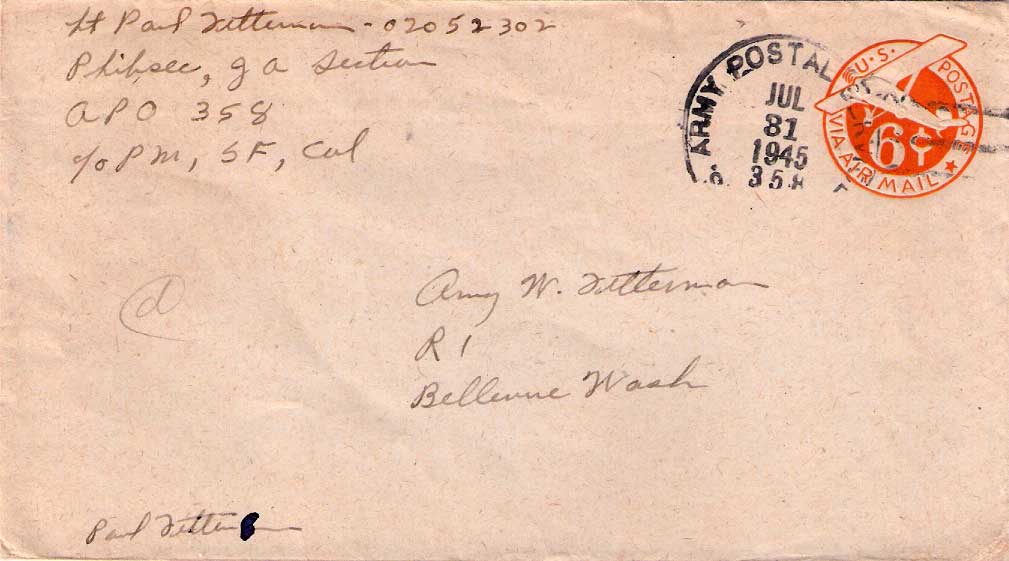 Lt Paul Fetterman - 02052302
Philsec, J A Section
APO 358
c/o PM, SF, Cal
ARMY POSTAL
JUL
31
1945
358
U.S. POSTAGE
6¢
VIA AIR MAIL
Amy W. Fetterman
R 1
Bellevue Wash
Paul Fetterman